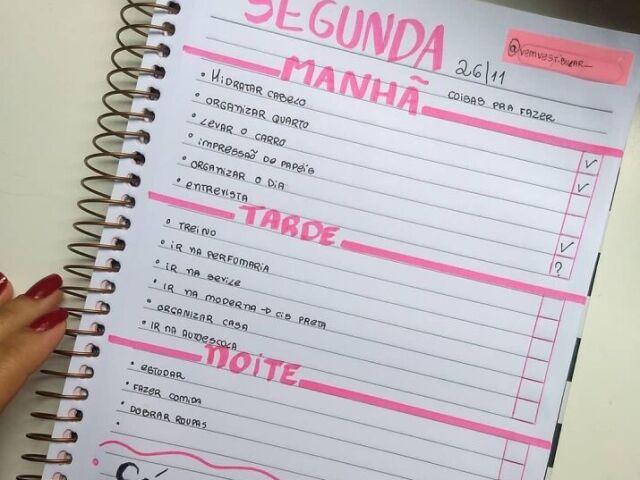 SEGUNDA
@vemvest.bular_
26/11
MANHÃ
COISAS PRA FAZER
• HIDRATAR CABELO
• ORGANIZAR QUARTO
• LEVAR O CARRO
• IMPRESSÃO DE PAPÉIS
• ORGANIZAR O DIA
• ENTREVISTA
?
TARDE
• TREINO
• IR NA PERFUMARIA
• IR NA
• IR NA MODERNA → CIS PRETA
• ORGANIZAR CASA
• IR NA AUTOESCOLA
NOITE
• ESTUDAR
• FAZER COMIDA
• DOBRAR ROUPAS
•